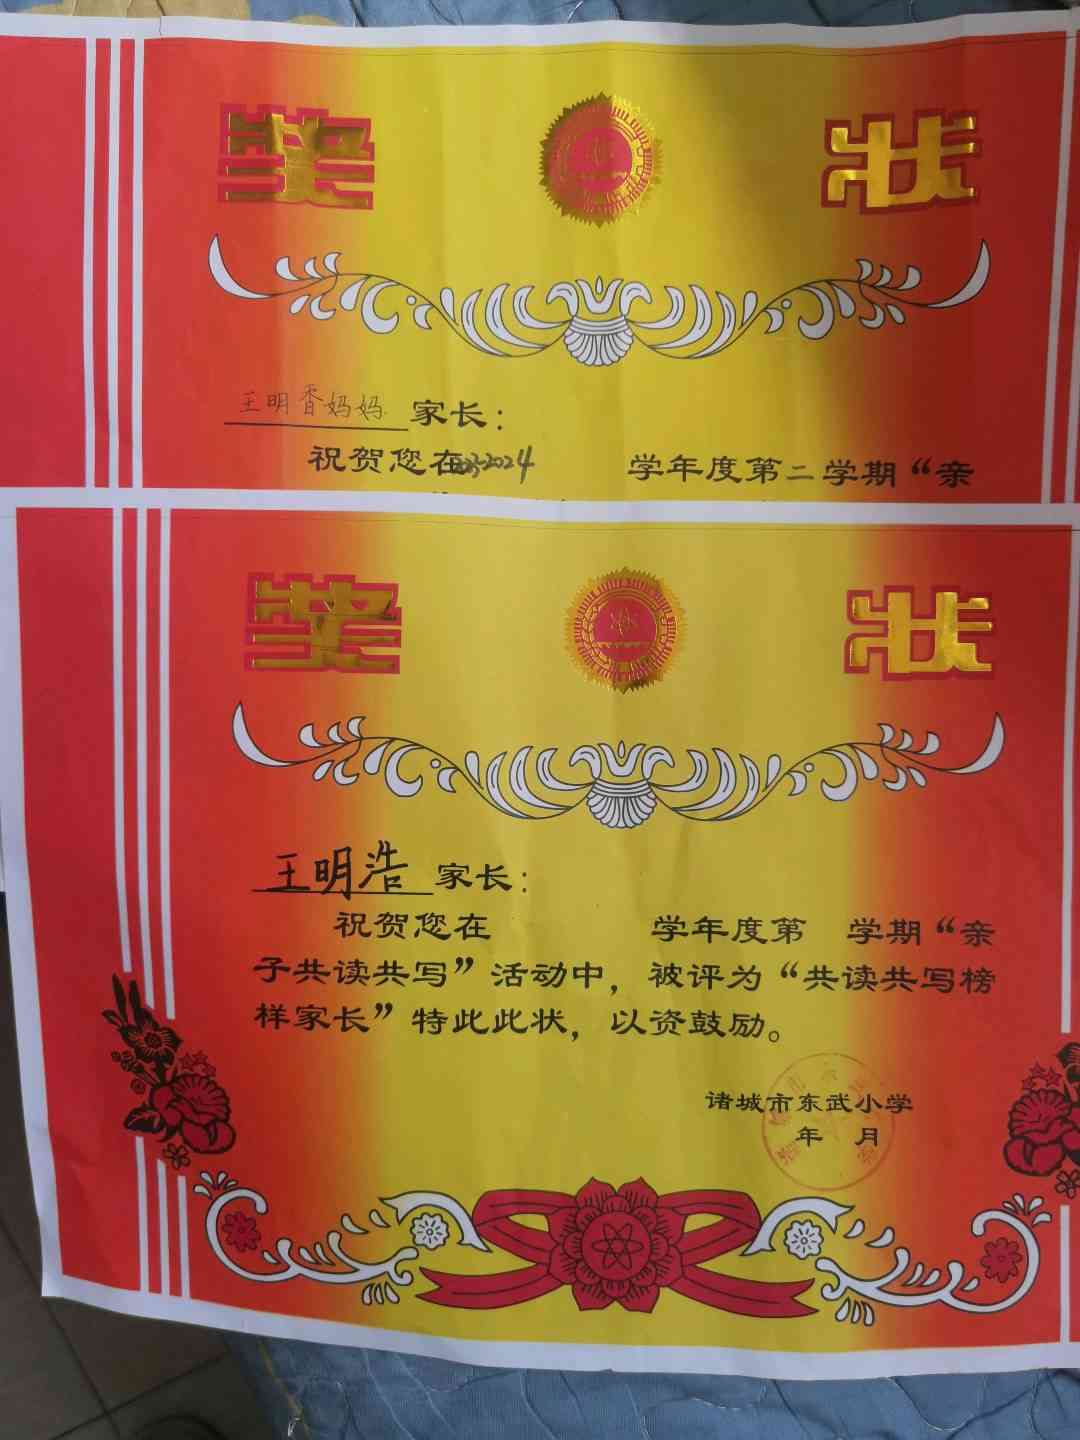 奖 状
王明香妈妈 家长：
祝贺您在2023-2024 学年度第二学期“亲
奖 状
王明浩 家长：
祝贺您在 学年度第 学期“亲
子共读共写”活动中，被评为“共读共写榜
样家长”特此此状，以资鼓励。
诸城市东武小学
年 月